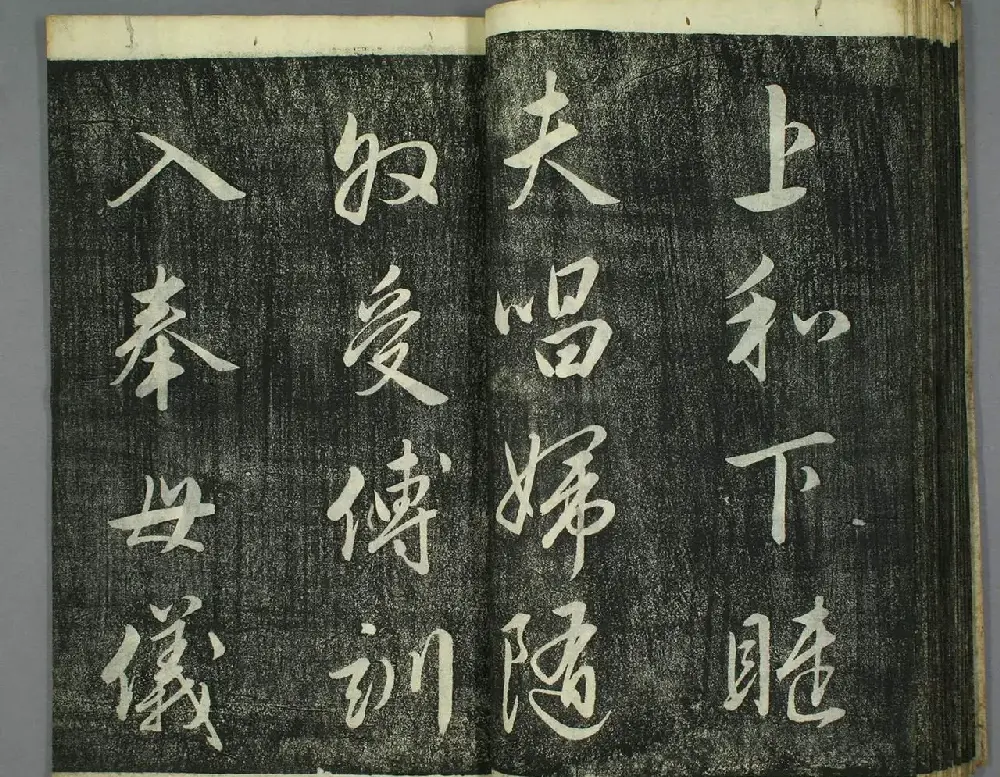 上和下睦
夫唱婦隨
外受傅訓
入奉母儀